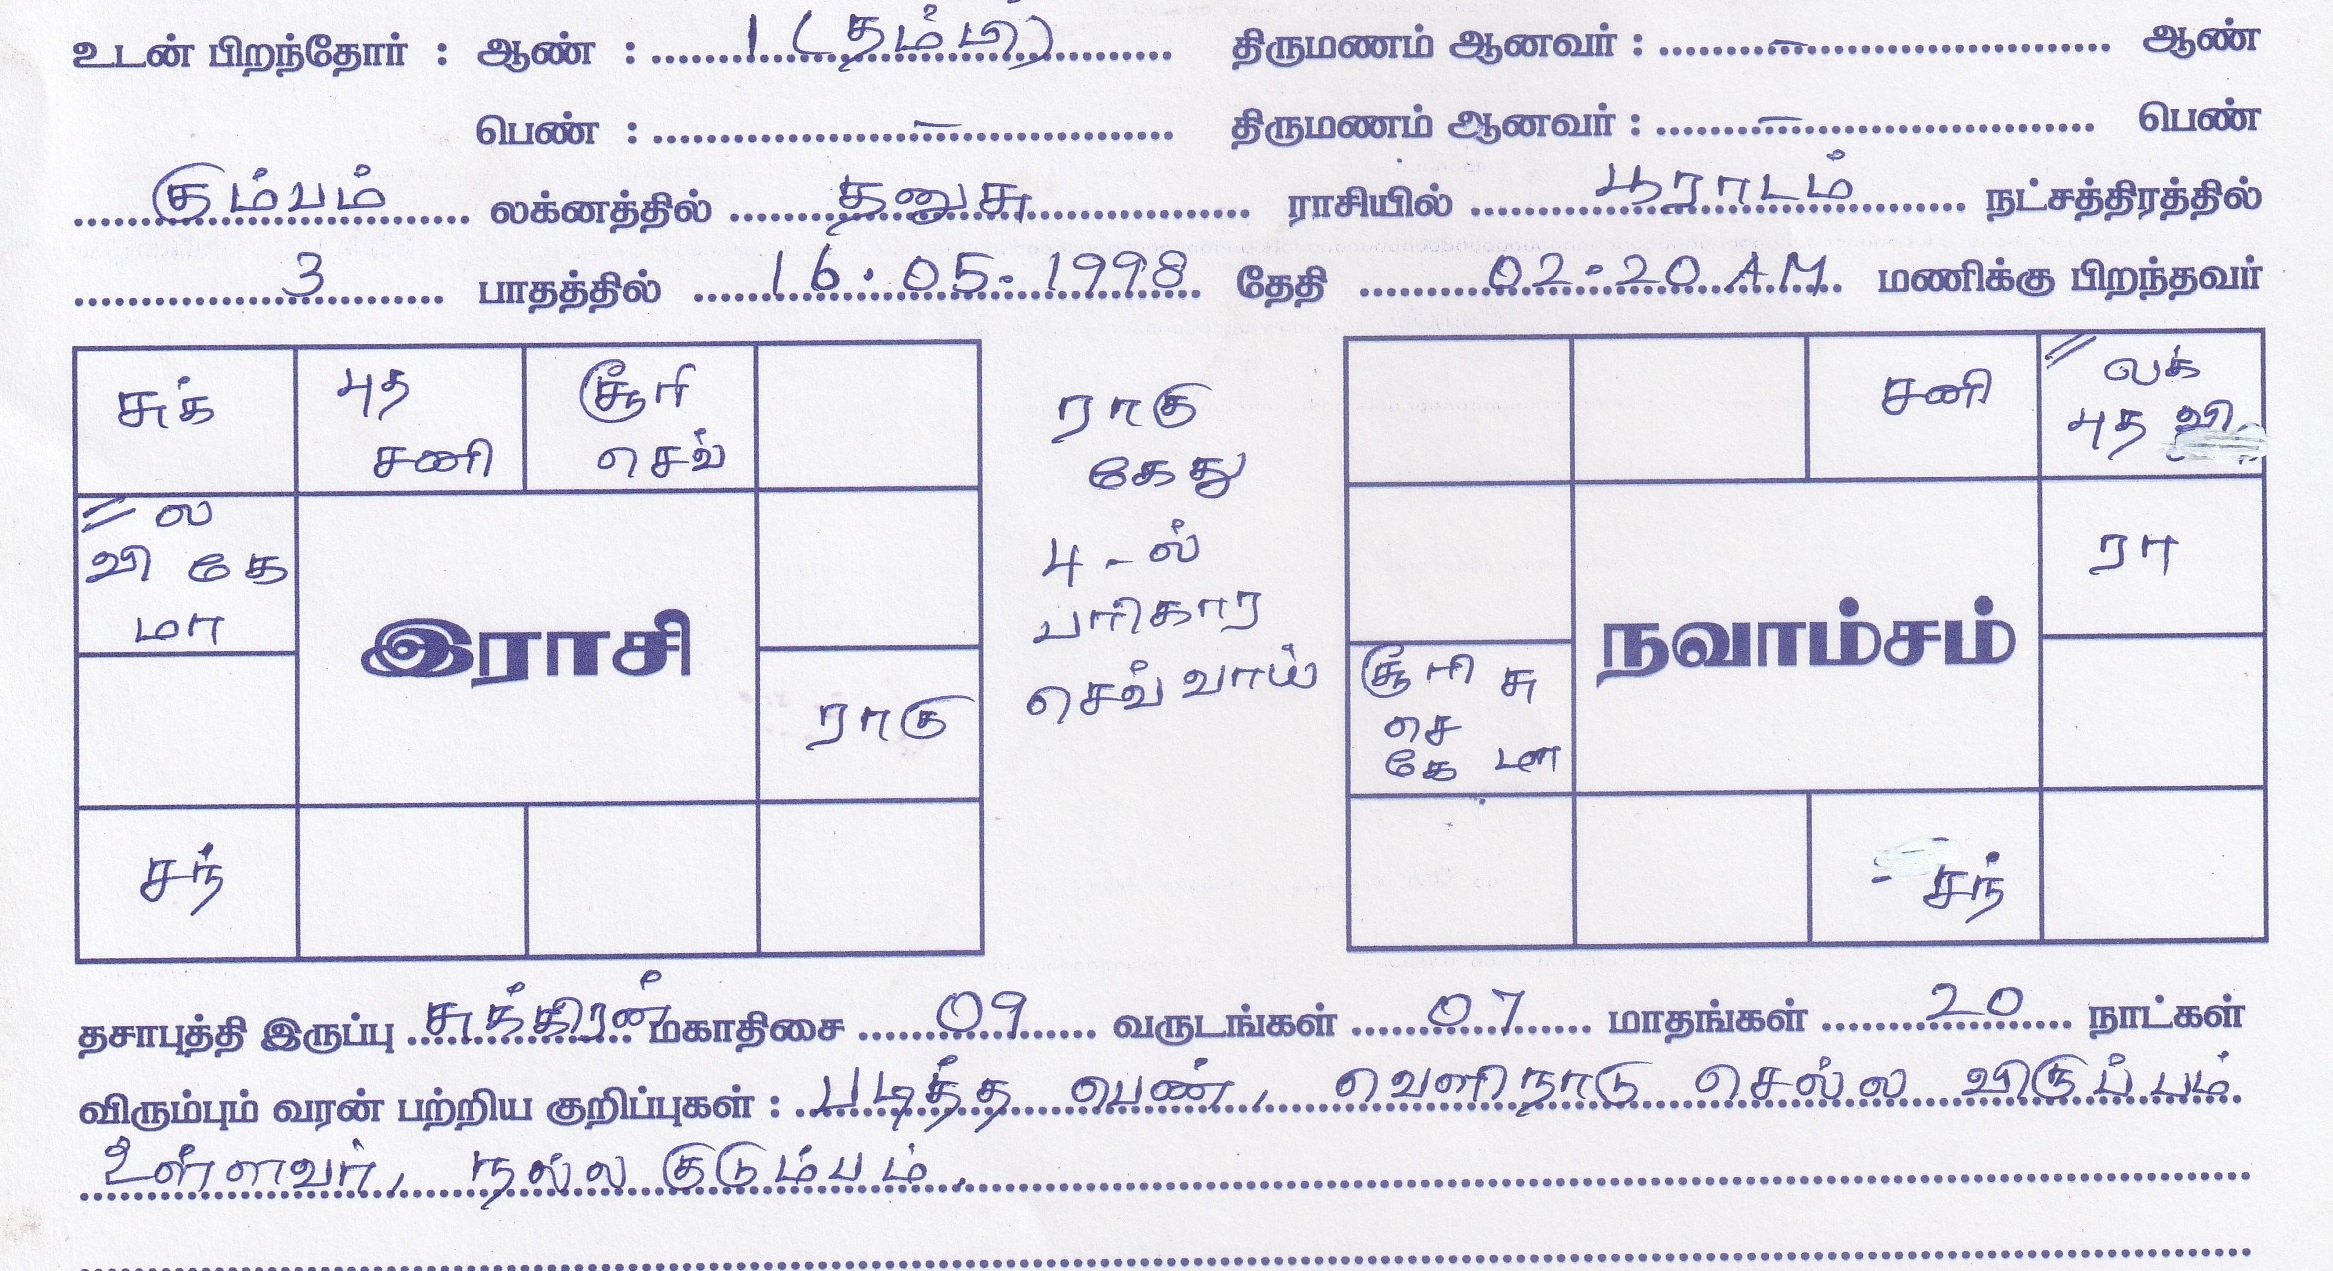 உடன் பிறந்தோர் : ஆண் : 1 (தம்பி) திருமணம் ஆனவர் : – ஆண்
பெண் : – திருமணம் ஆனவர் : – பெண்
கும்பம் லக்னத்தில் தனுசு ராசியில் பூராடம் நட்சத்திரத்தில்
3 பாதத்தில் 16.05.1998 தேதி 02.20 AM மணிக்கு பிறந்தவர்
சுக்
புத
சனி
சூரி
செவ்
// ல
வி கே
மா
இராசி
ராகு
சந்
ராகு
கேது
4-ல்
பரிகார
செவ்வாய்
சனி
// லக்
புத வி
ரா
நவாம்சம்
சூரி சு
செ
கே மா
- சந்
தசாபுத்தி இருப்பு சுக்கிரன் மகாதிசை 09 வருடங்கள் 07 மாதங்கள் 20 நாட்கள்
விரும்பும் வரன் பற்றிய குறிப்புகள் : படித்த பெண், வெளிநாடு செல்ல விருப்பம்
உள்ளவர், நல்ல குடும்பம்.